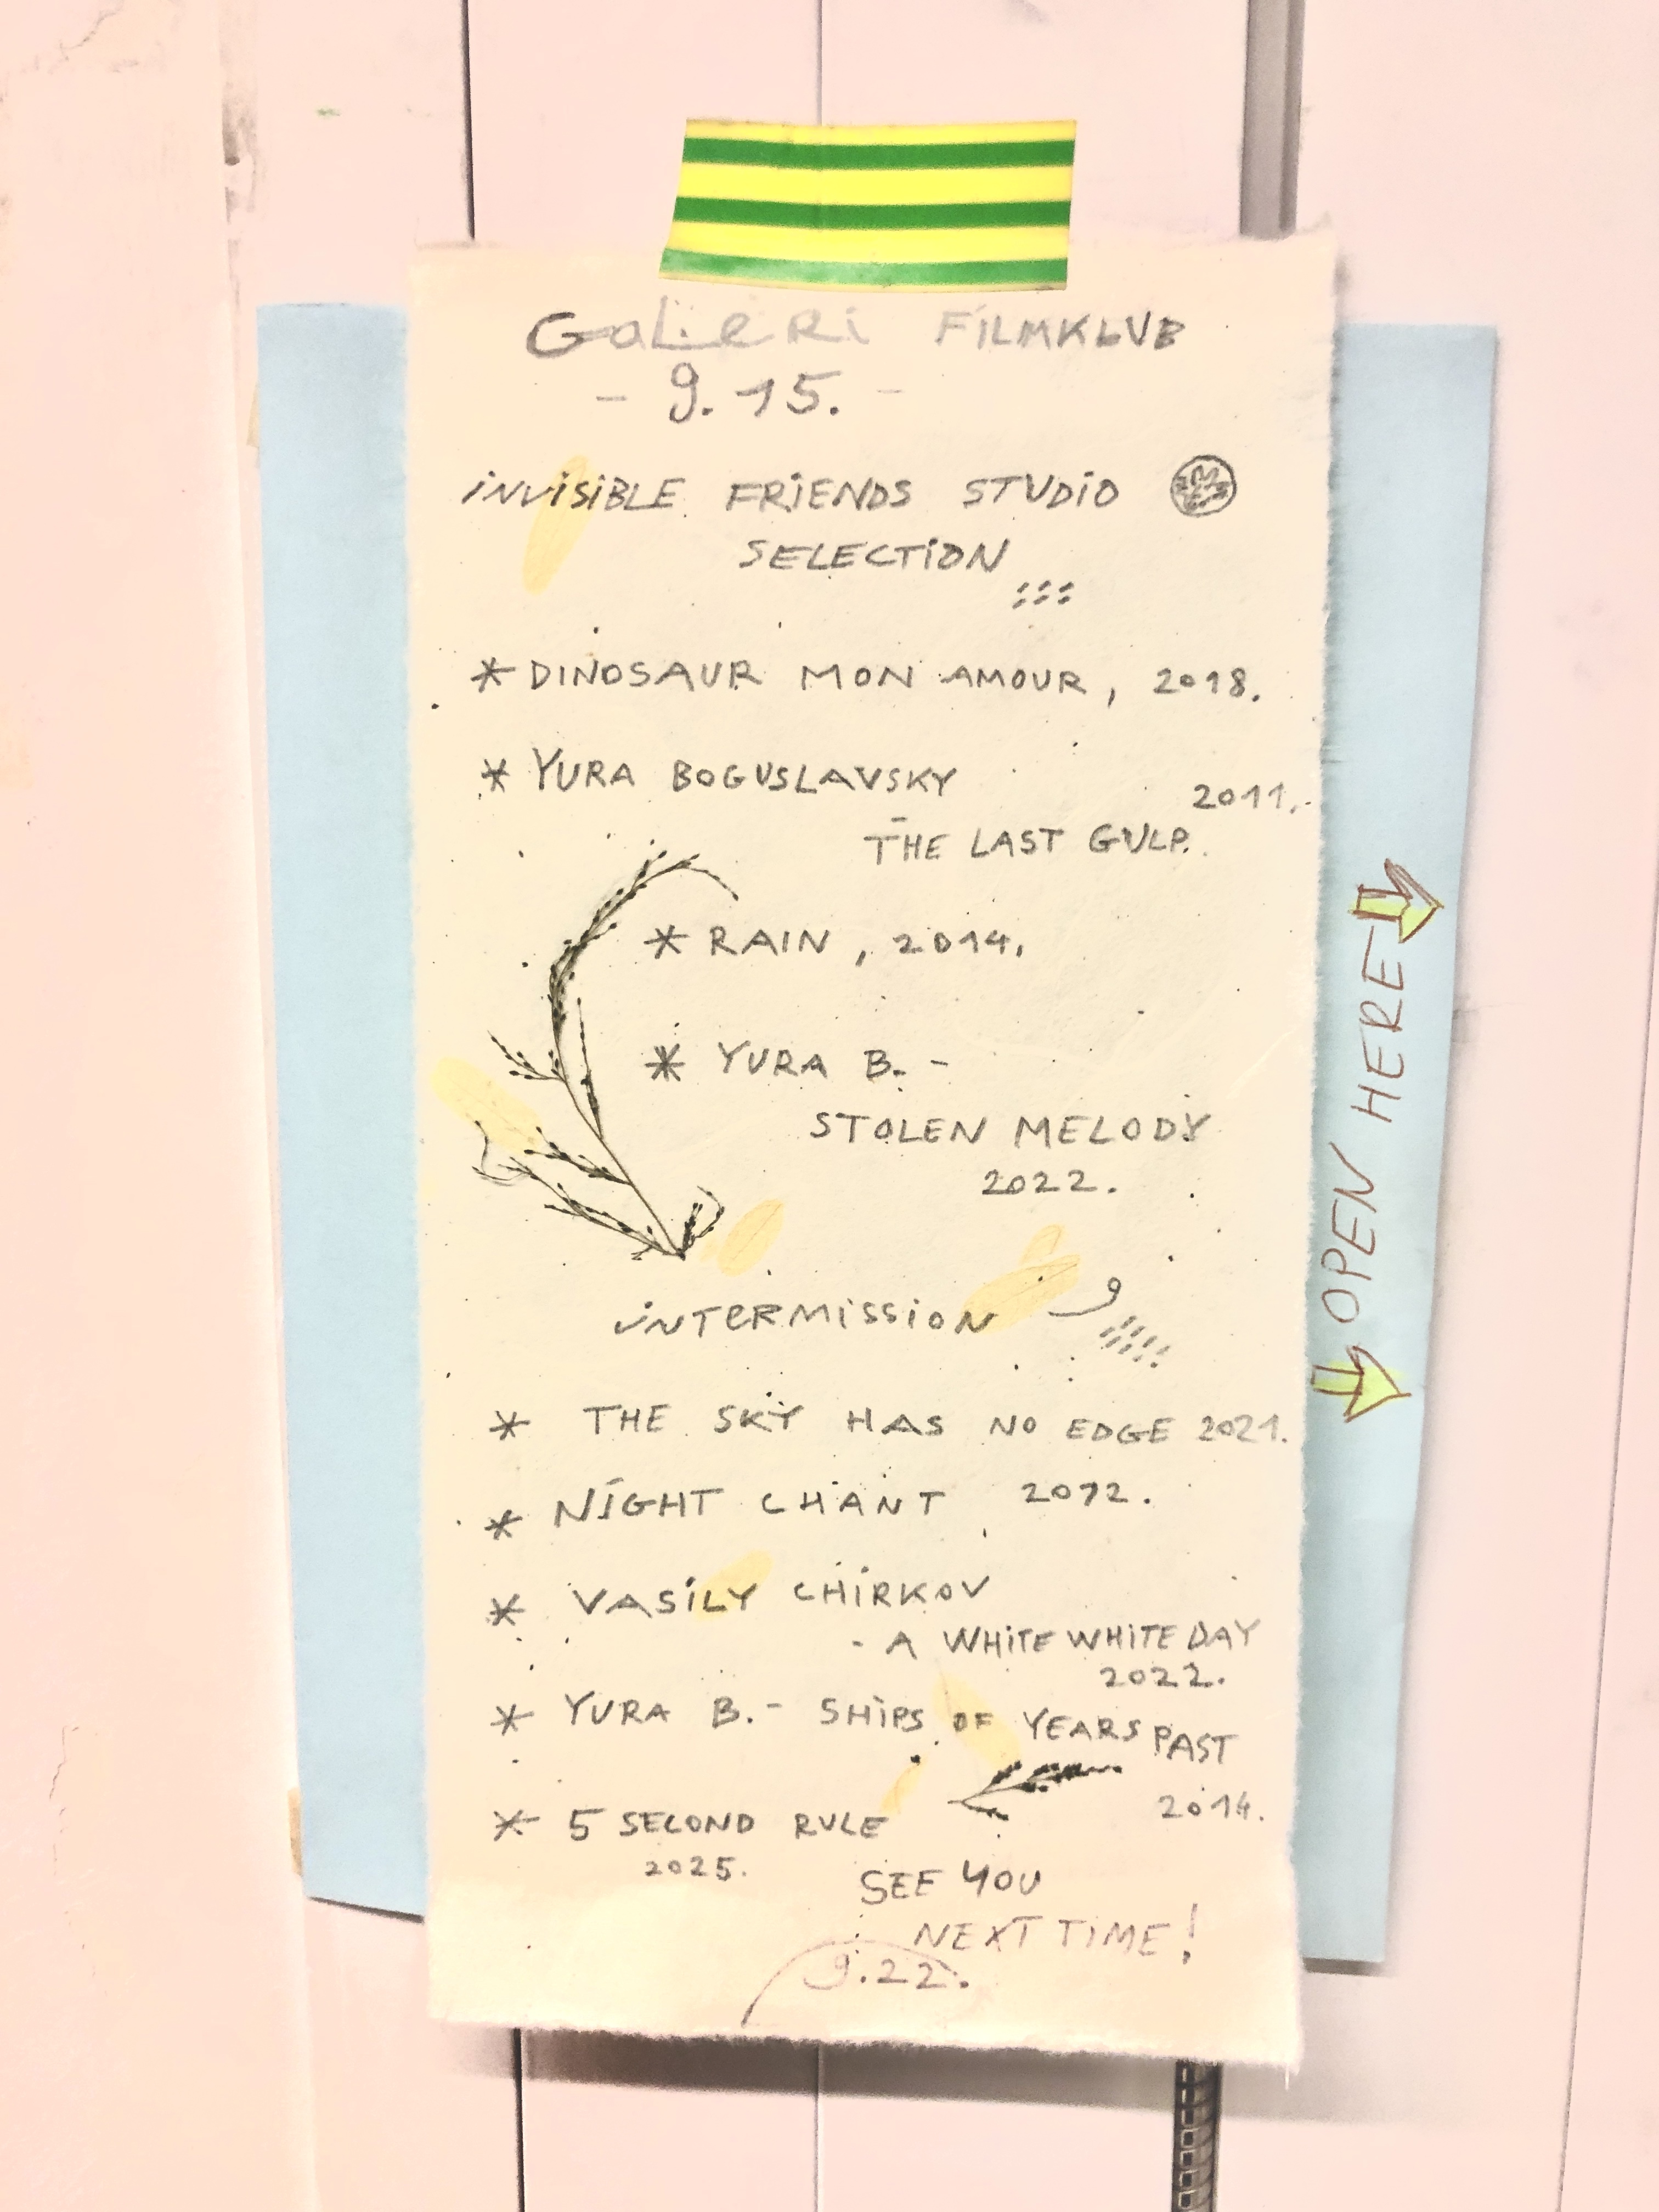 GaLeRi FiLMKLUB
- 9.15. -
iNViSiBLE FRiENDS STUDiO
SELECTiON
* DINOSAUR MON AMOUR, 2018.
* YURA BOGUSLAVSKY
2011.
- THE LAST GULP.
* RAIN, 2014.
* YURA B. -
STOLEN MELODY
2022.
iNTeRMiSSiON
* THE SKY HAS NO EDGE 2021.
* NiGHT CHANT 2012.
* VASiLY CHiRKOV
- A WHiTE WHiTE DAY
2022.
* YURA B. - SHiPS OF YEARS PAST
2014.
* 5 SECOND RULE
2025.
SEE YOU
NEXT TiME!
9.22.
OPEN HERE